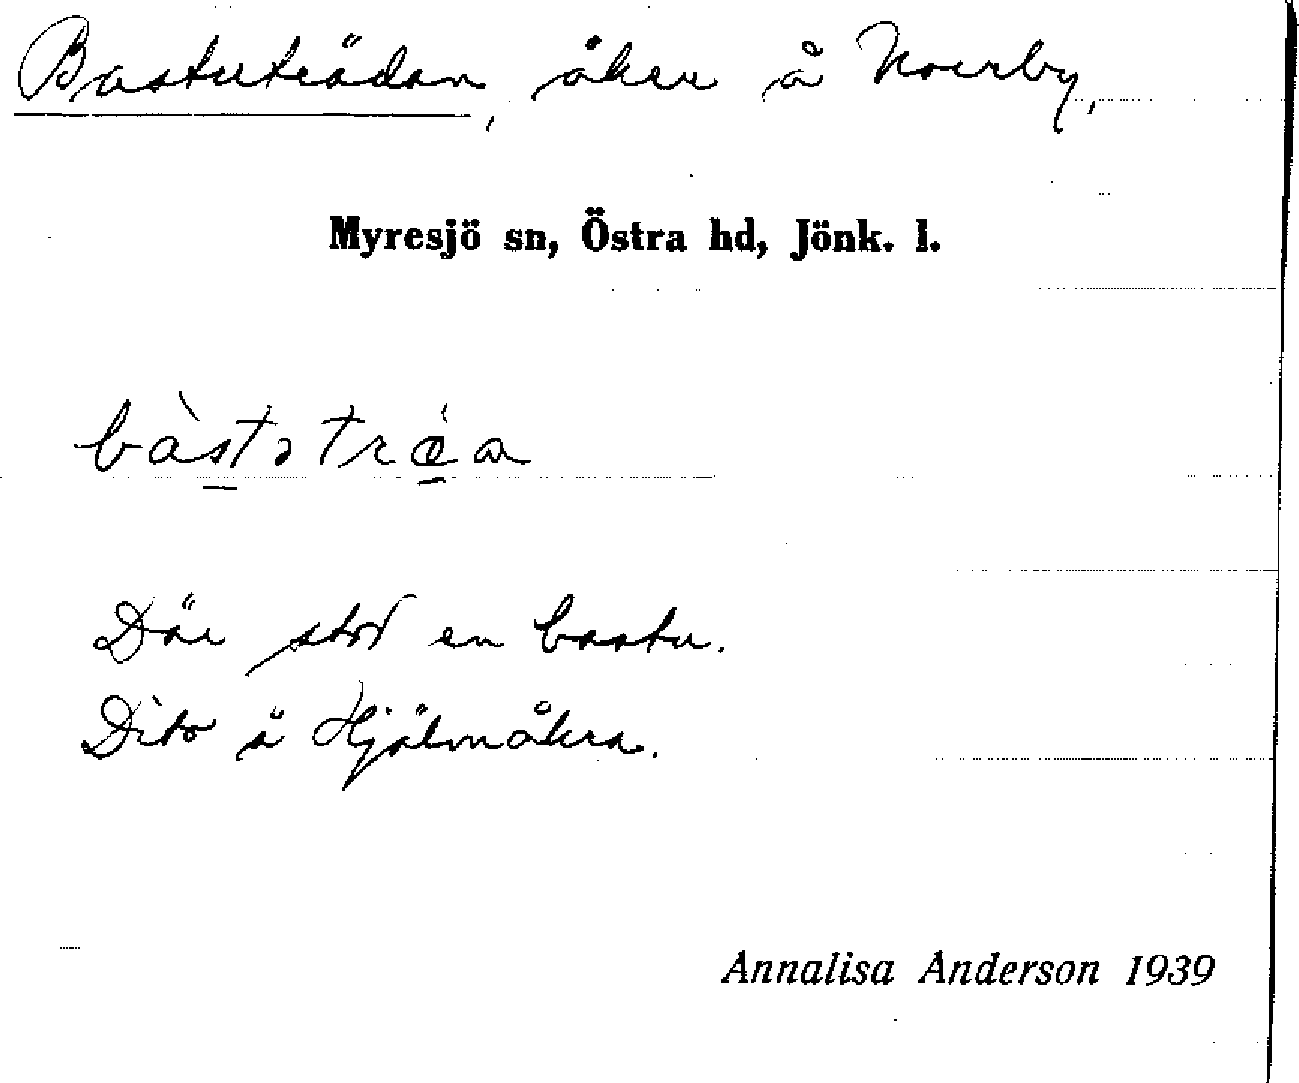 Bastuträdan, åker å Norrby,
Myresjö sn, Östra hd, Jönk. l.
Där stod en bastu.
Dito å Hjälmåkra.
Annalisa Anderson 1939